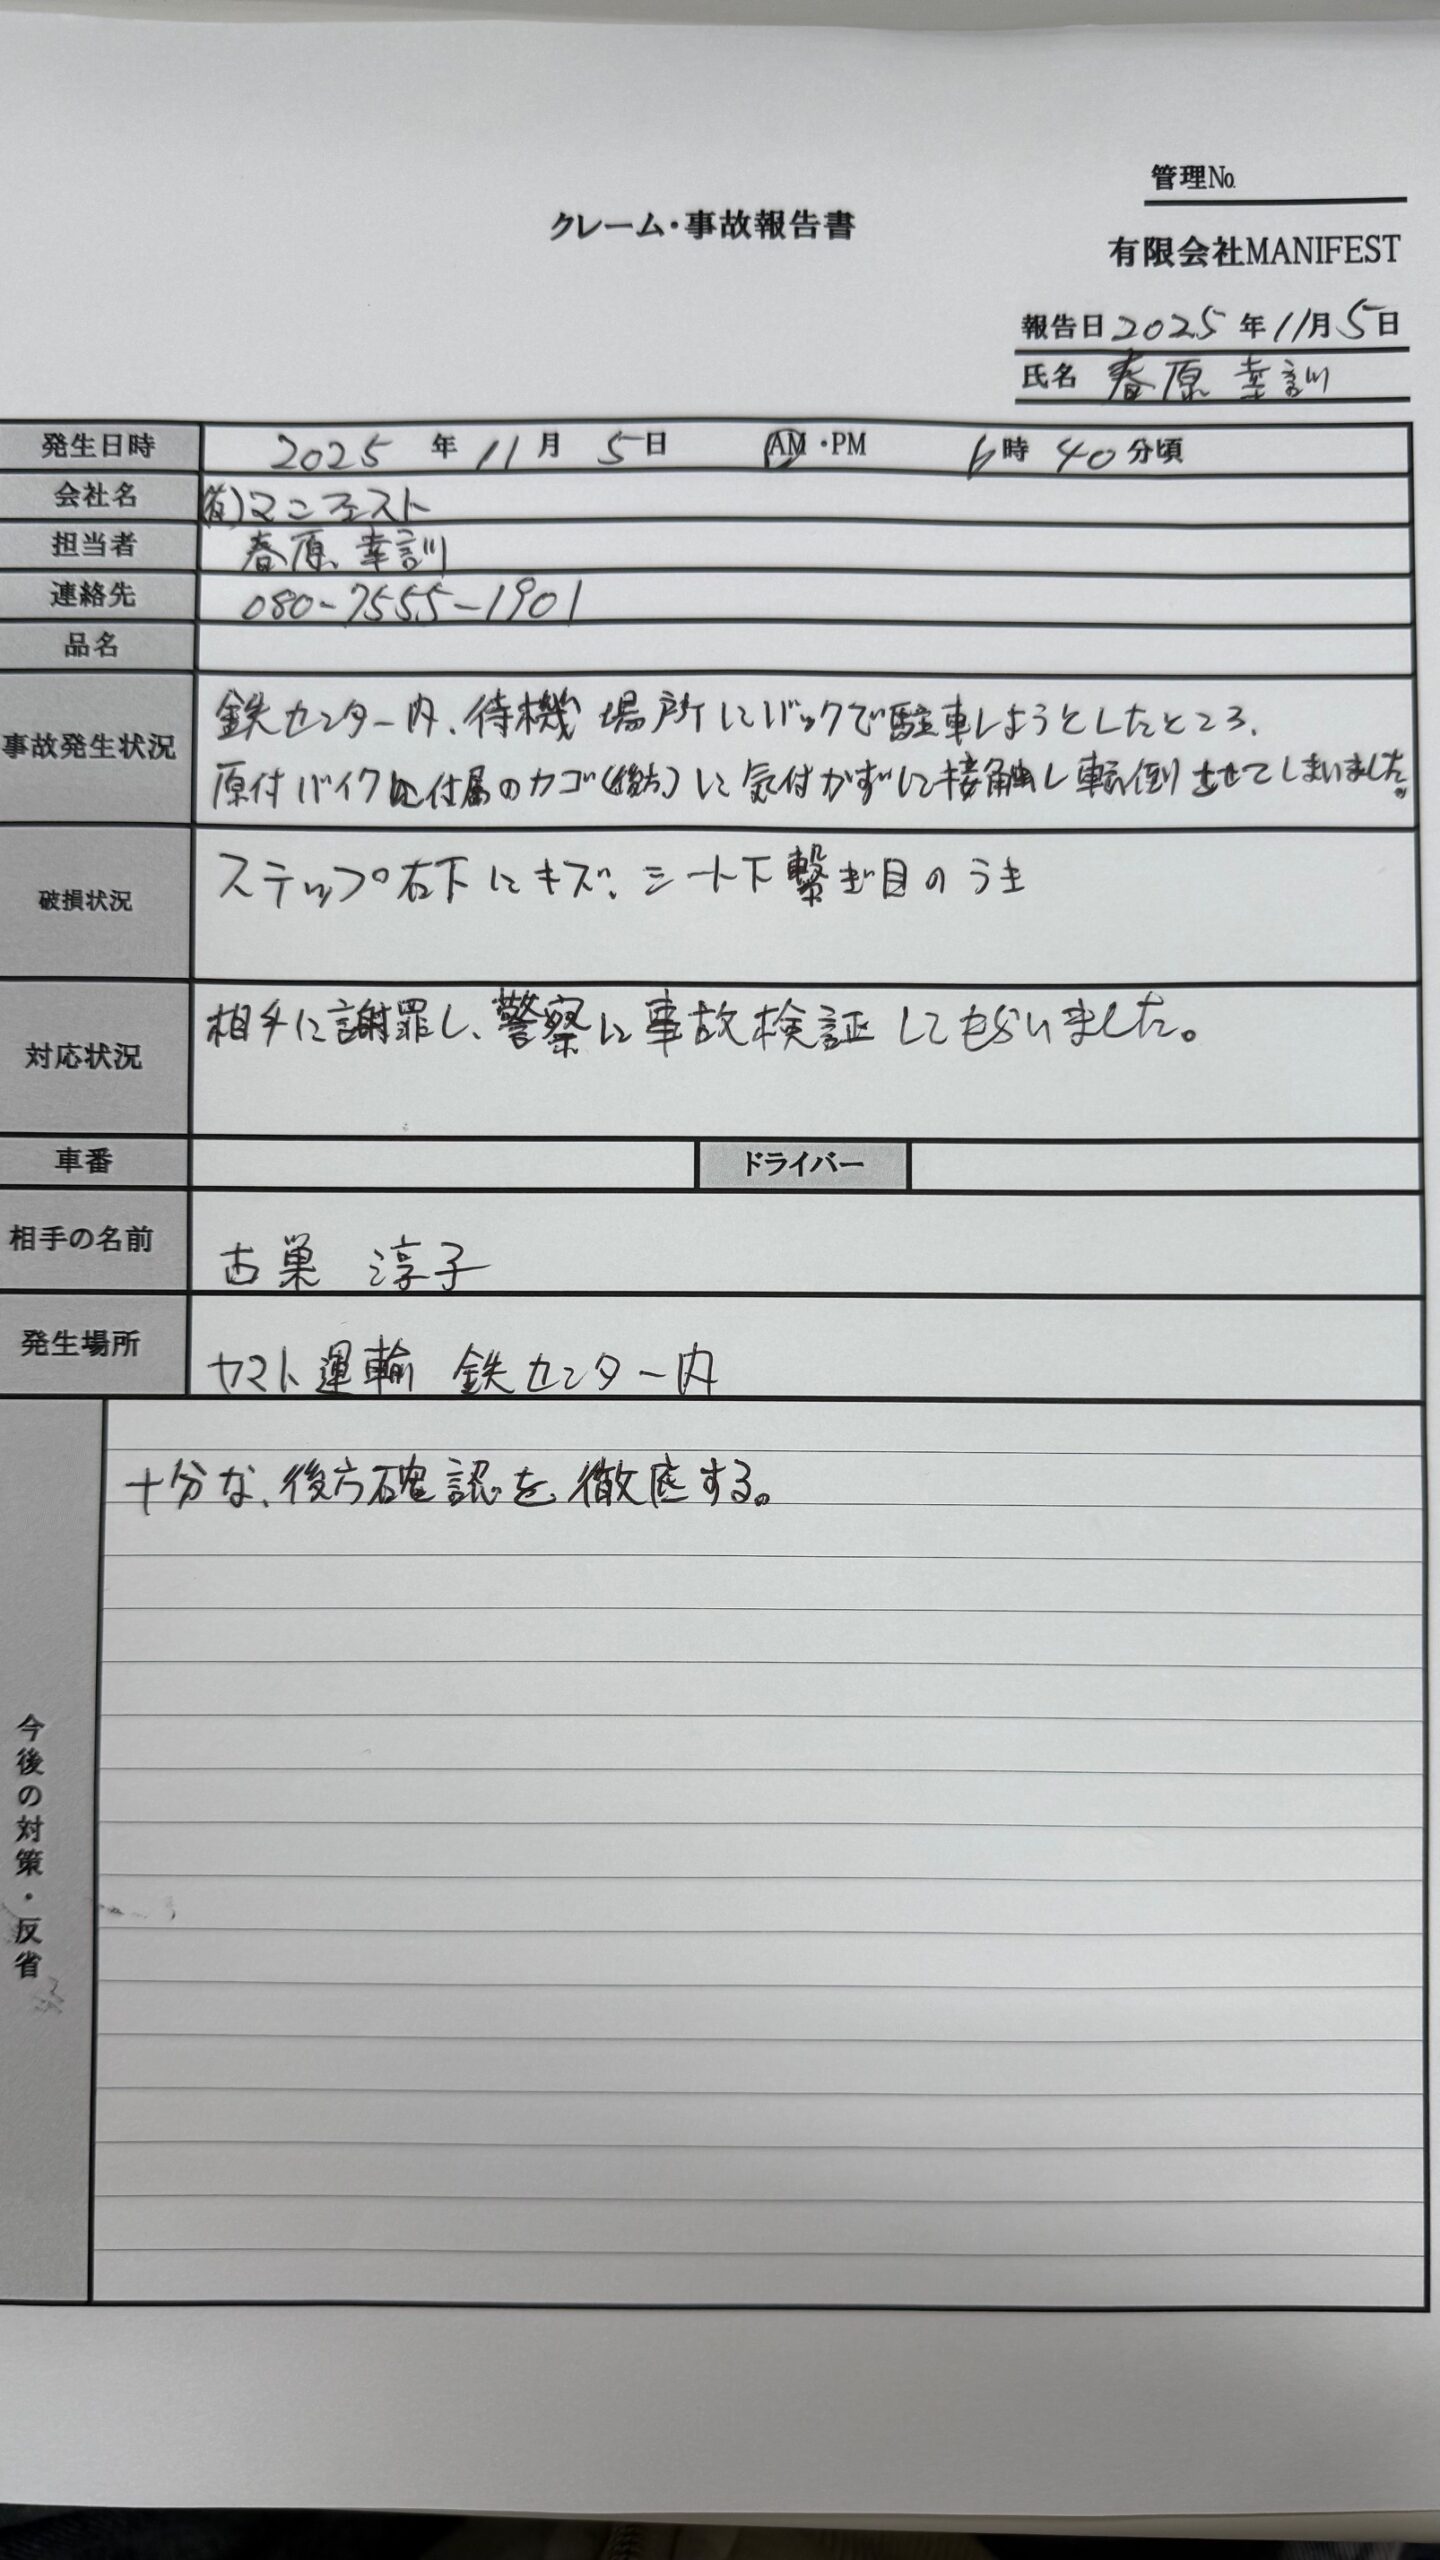 管理№
クレーム・事故報告書
有限会社MANIFEST
報告日 2025 年 11月 5日
氏名 春原 幸訓
発生日時 2025 年 11 月 5日 AM・PM 6時 40分頃
会社名 (有)マニフェスト
担当者 春原 幸訓
連絡先 080-7555-1901
品名
鉄センター内、待機場所にバックで駐車しようとしたところ、
事故発生状況
原付バイクに付属のカゴ(後方)に気付かずに接触し転倒させてしまいました。
破損状況 ステップ右下にキズ、シート下繋ぎ目のうき
対応状況 相手に謝罪し、警察に事故検証してもらいました。
車番 ドライバー
相手の名前 古巣 淳子
発生場所 ヤマト運輸 鉄センター内
今後の対策・反省
十分な、後方確認を徹底する。